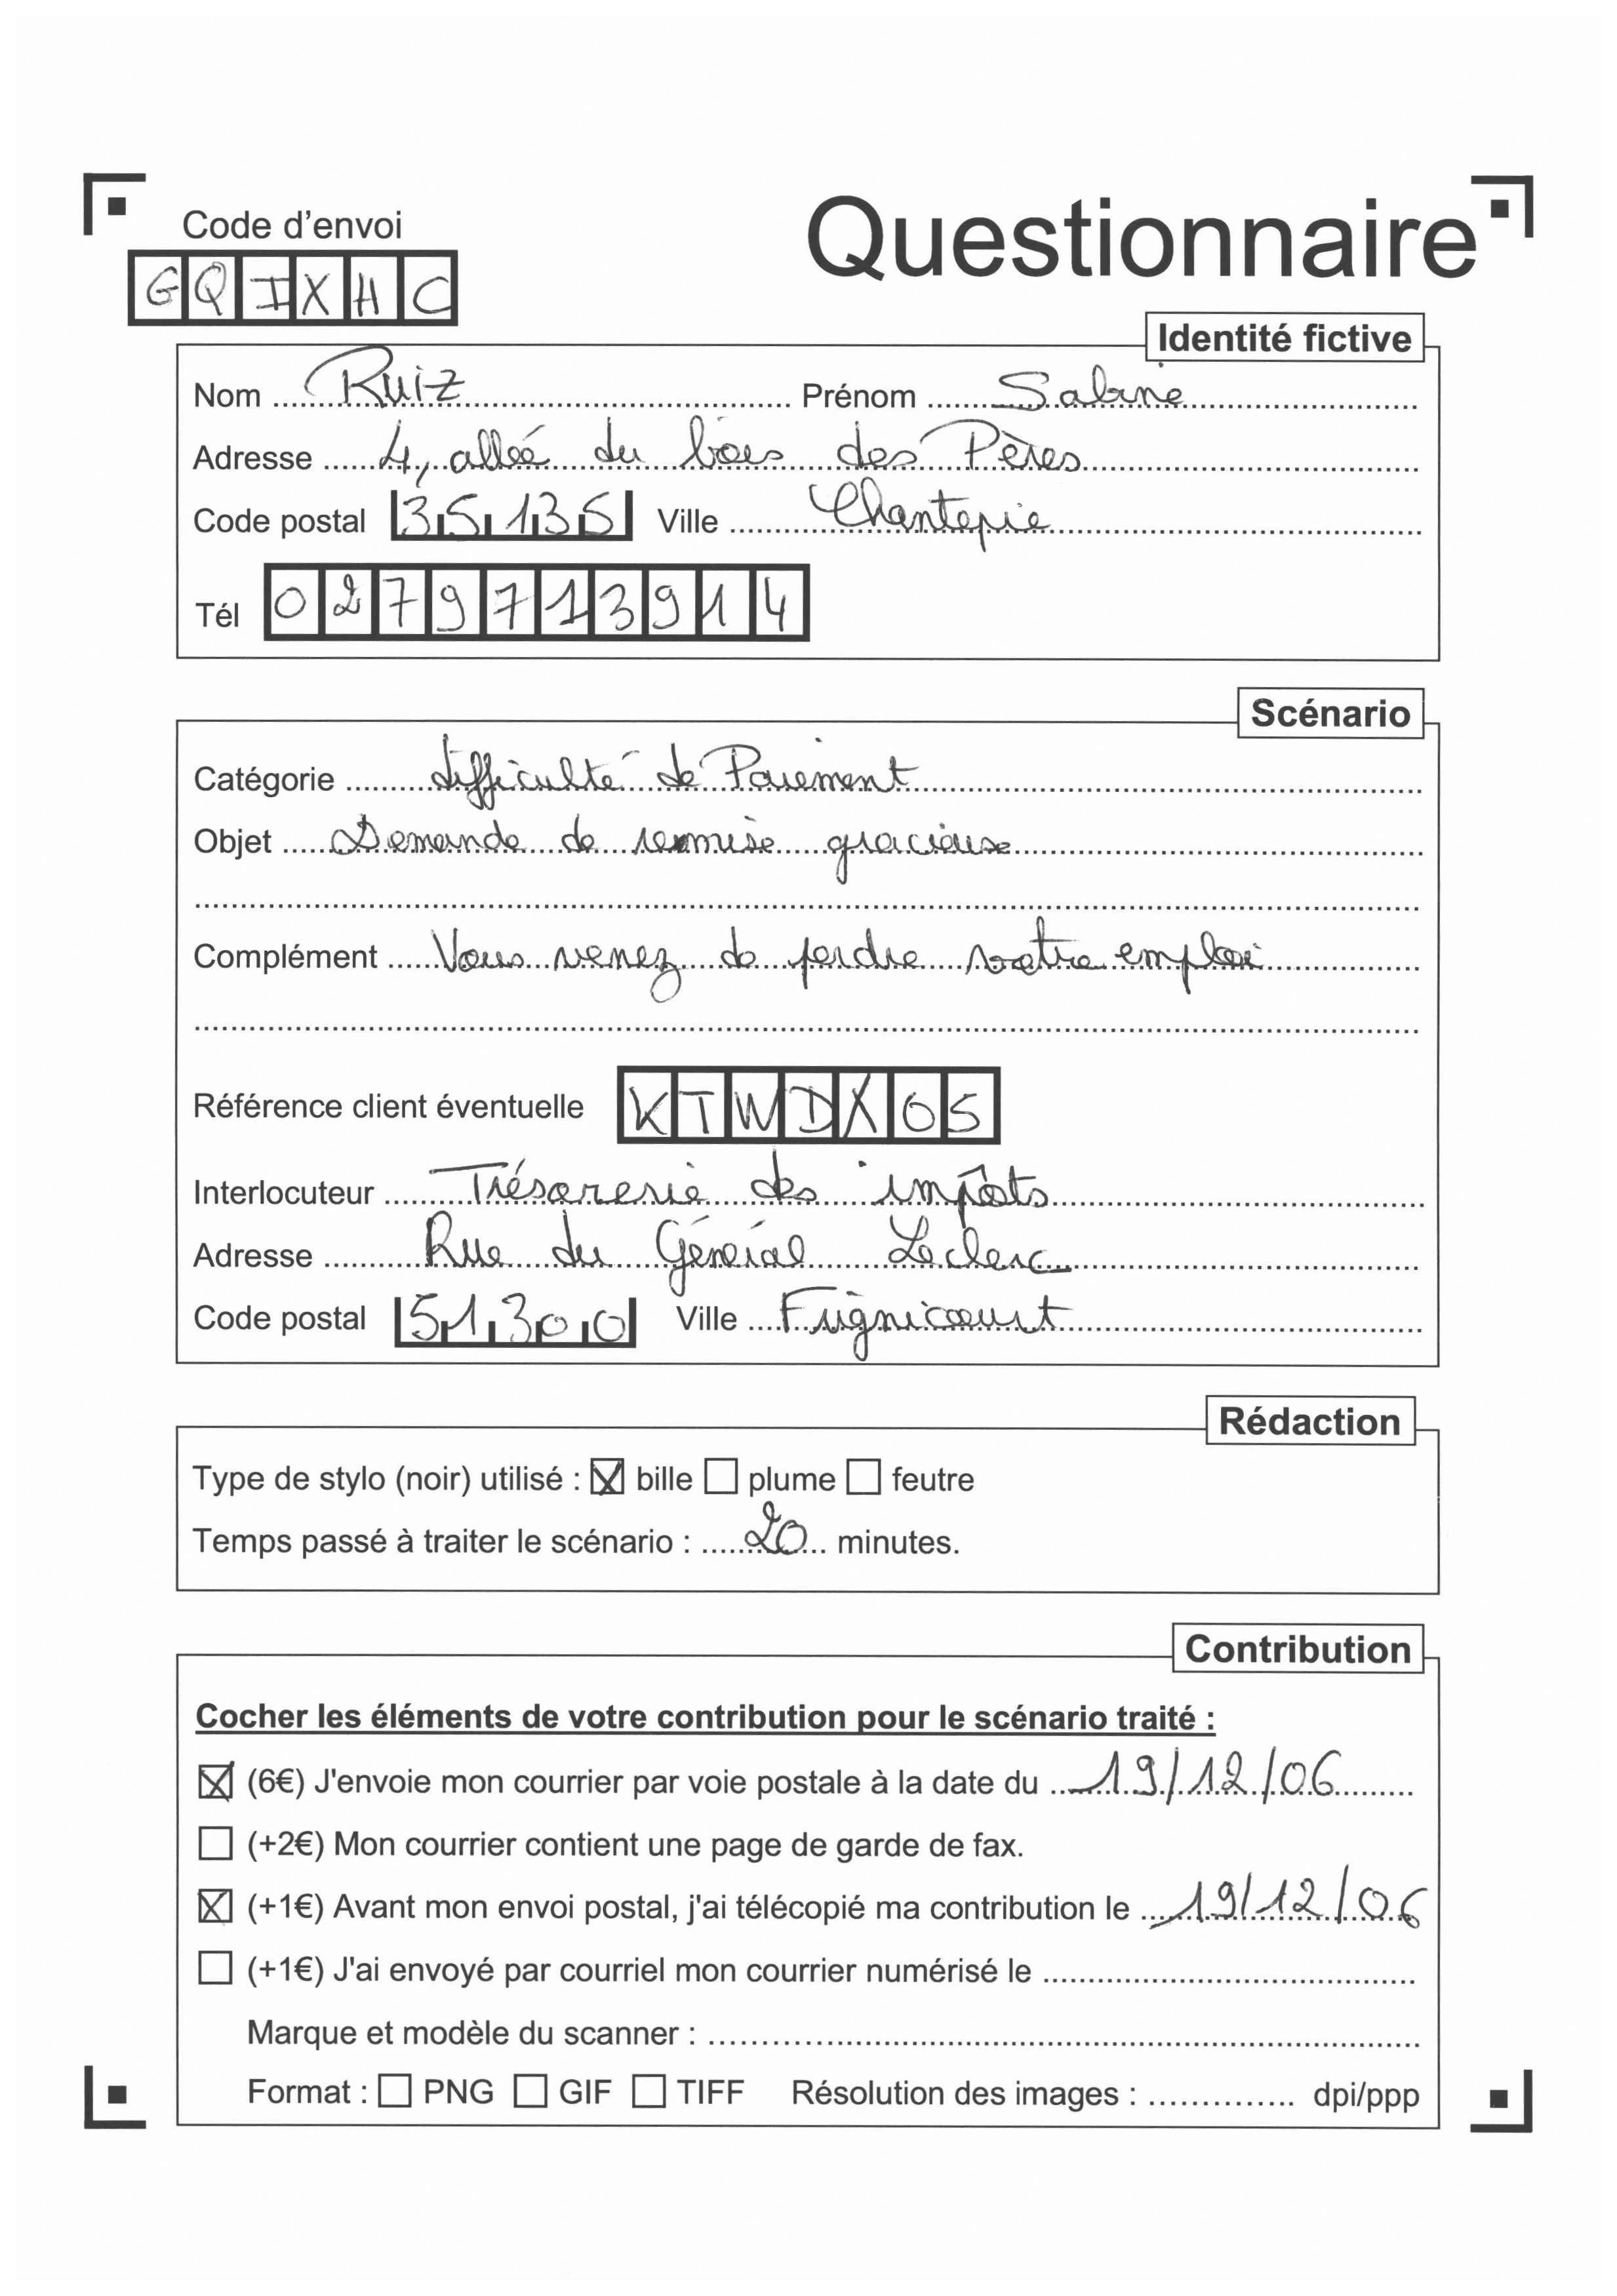 Code d'envoi
Questionnaire
GQIXHC
Identité fictive
Nom Ruiz Prénom Sabine
Adresse 4, allée du bois des Pères
Code postal 35135 Ville Chantepie
Tél 0279713914
Scénario
Catégorie difficulté de Paiement
Objet Demande de remise gracieuse
Complément Vous venez de perdre votre emploi
Référence client éventuelle KTWDX05
Interlocuteur Trésorerie des impôts
Adresse Rue du Général Leclerc
Code postal 51300 Ville Frignicourt
Rédaction
Type de stylo (noir) utilisé : ☒ bille ☐ plume ☐ feutre
Temps passé à traiter le scénario : 20 minutes.
Contribution
Cocher les éléments de votre contribution pour le scénario traité :
☒ (6€) J'envoie mon courrier par voie postale à la date du 19/12/06
☐ (+2€) Mon courrier contient une page de garde de fax.
☒ (+1€) Avant mon envoi postal, j'ai télécopié ma contribution le 19/12/06
☐ (+1€) J'ai envoyé par courriel mon courrier numérisé le
Marque et modèle du scanner :
Format : ☐ PNG ☐ GIF ☐ TIFF Résolution des images : dpi/ppp